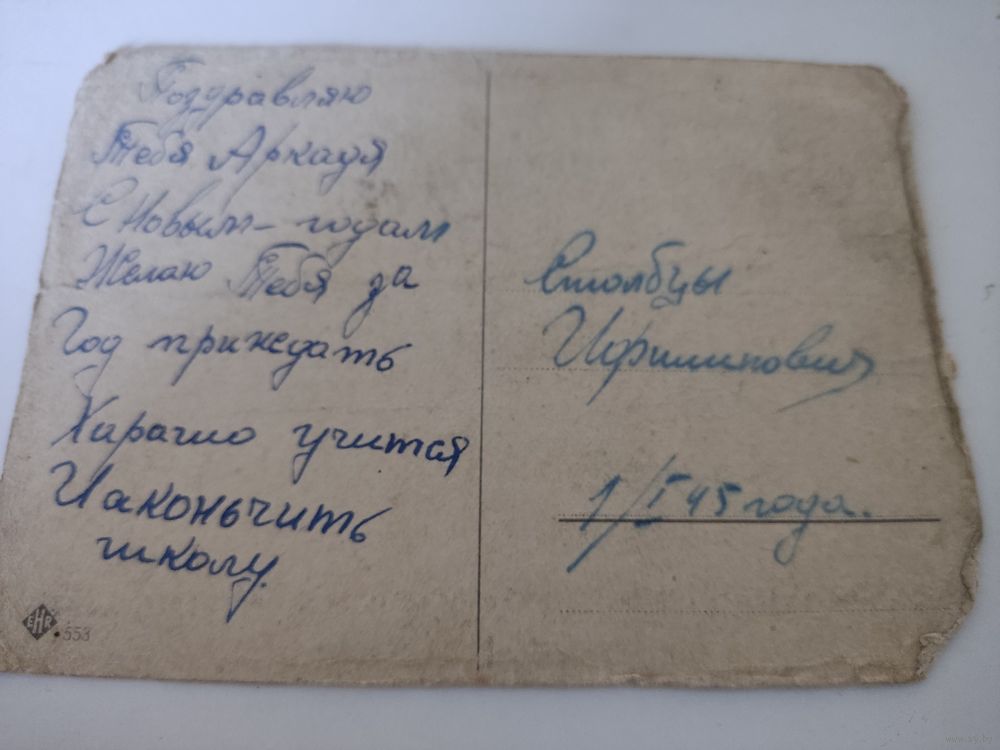 Поздравляю
Тебя Аркадя
С Новым-годам
Желаю Тебя за
Год приждать
Харашо учится
Иаконьчить
школу.
EHR
553
Столбцы
Ифилипович
1/I 45 года.